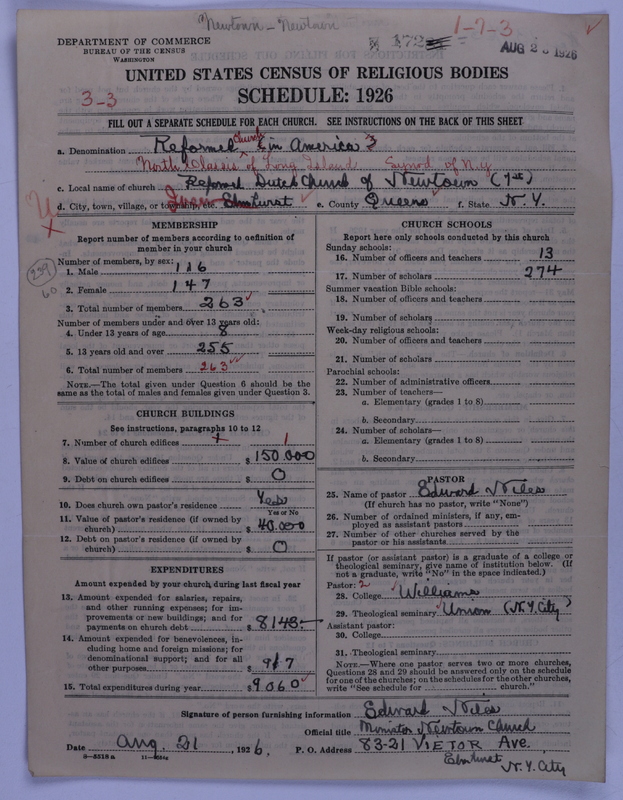 Newtown - Newtown
1-7-3
172
AUG 23 1926
DEPARTMENT OF COMMERCE
BUREAU OF THE CENSUS
WASHINGTON
UNITED STATES CENSUS OF RELIGIOUS BODIES
3-3
SCHEDULE: 1926
FILL OUT A SEPARATE SCHEDULE FOR EACH CHURCH. SEE INSTRUCTIONS ON THE BACK OF THIS SHEET
a. Denomination Reformed Church in America 3
North Classis of Long Island Synod of N.Y.
c. Local name of church Reformed Dutch Church of Newtown (1st)
d. City, town, village, or township, etc. Elmhurst e. County Queens f. State N.Y.
MEMBERSHIP
Report number of members according to definition of member in your church
Number of members, by sex:
239
60
1. Male 116
2. Female 147
3. Total number of members 263
Number of members under and over 13 years old:
4. Under 13 years of age 8
5. 13 years old and over 255
6. Total number of members 263
NOTE.—The total given under Question 6 should be the same as the total of males and females given under Question 3.
CHURCH BUILDINGS
See instructions, paragraphs 10 to 12
7. Number of church edifices 1
8. Value of church edifices $150.000
9. Debt on church edifices $ 0
10. Does church own pastor's residence Yes
Yes or No
11. Value of pastor's residence (if owned by church) $ 40.000
12. Debt on pastor's residence (if owned by church) $ 0
EXPENDITURES
Amount expended by your church during last fiscal year
13. Amount expended for salaries, repairs, and other running expenses; for improvements or new buildings; and for payments on church debt $ 8143.
14. Amount expended for benevolences, including home and foreign missions; for denominational support; and for all other purposes $ 917
15. Total expenditures during year $9060
CHURCH SCHOOLS
Report here only schools conducted by this church
Sunday schools:
16. Number of officers and teachers 13
17. Number of scholars 274
Summer vacation Bible schools:
18. Number of officers and teachers
19. Number of scholars
Week-day religious schools:
20. Number of officers and teachers
21. Number of scholars
Parochial schools:
22. Number of administrative officers
23. Number of teachers—
a. Elementary (grades 1 to 8)
b. Secondary
24. Number of scholars—
a. Elementary (grades 1 to 8)
b. Secondary
PASTOR
25. Name of pastor Edward Niles
(If church has no pastor, write "None")
26. Number of ordained ministers, if any, employed as assistant pastors
27. Number of other churches served by the pastor or his assistants
If pastor (or assistant pastor) is a graduate of a college or theological seminary, give name of institution below. (If not a graduate, write "No" in the space indicated.)
Pastor: 2
28. College Williams
29. Theological seminary Union (N.Y. City)
Assistant pastor:
30. College
31. Theological seminary
NOTE.—Where one pastor serves two or more churches, Questions 28 and 29 should be answered only on the schedule for one of the churches; on the schedules for the other churches, write "See schedule for ______ church."
Signature of person furnishing information Edward Niles
Official title Minister Newtown Church
Date Aug. 21, 1926. P. O. Address 83-21 VIETOR Ave.
Elmhurst
N.Y. City